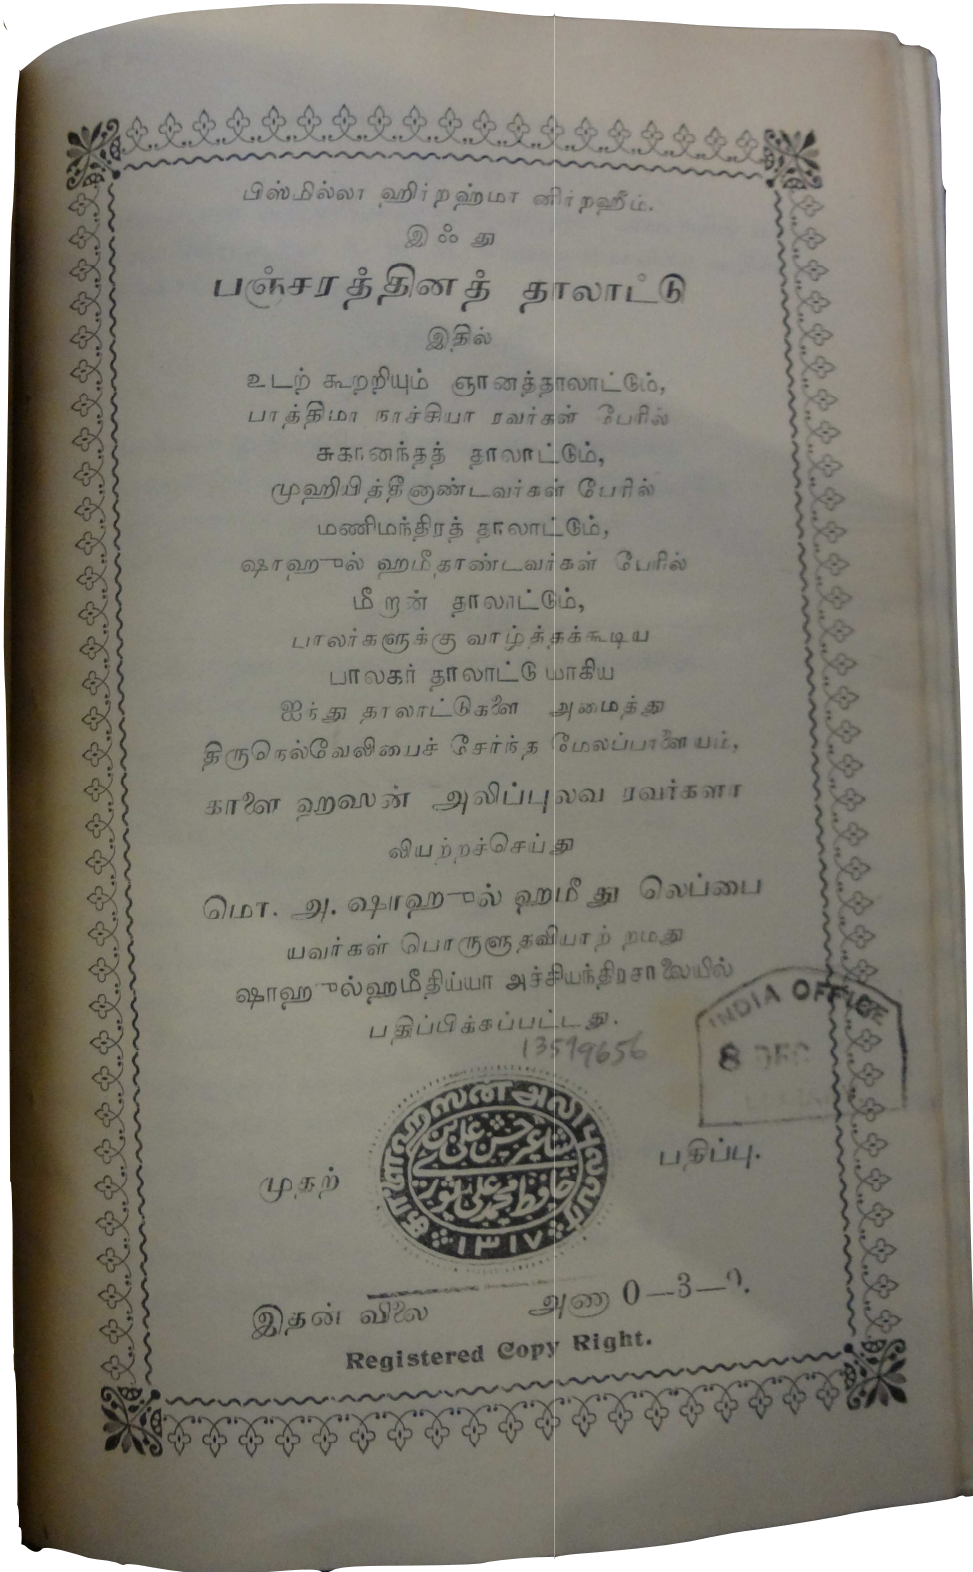 பிஸ்மில்லா ஹிர்றஹ்மா னிர்றஹீம்.
இஃது
பஞ்சரத்தினத் தாலாட்டு
இதில்
உடற் கூறறியும் ஞானத்தாலாட்டும்,
பாத்திமா நாச்சியா ரவர்கள் பேரில்
சுகானந்தத் தாலாட்டும்,
முஹியித்தீனாண்டவர்கள் பேரில்
மணிமந்திரத் தாலாட்டும்,
ஷாஹுல் ஹமீதாண்டவர்கள் பேரில்
மீறான் தாலாட்டும்,
பாலர்களுக்கு வாழ்த்தக்கூடிய
பாலகர் தாலாட்டு மாகிய
ஐந்து தாலாட்டுகளை அமைத்து
திருநெல்வேலியைச் சேர்ந்த மேலப்பாளையம்,
காளை ஹஸன் அலிப்புலவ ரவர்களா
லியற்றச்செய்து
மொ. அ. ஷாஹுல் ஹமீது லெப்பை
யவர்கள் பொருளுதவியாற் றமது
ஷாஹுல்ஹமீதிய்யா அச்சியந்திரசாலையில்
பதிப்பிக்கப்பட்டது.
13579656
INDIA OFFICE
8 DEC
காளைஹஸன் அலிபுலவர்
١٣١٧
முதற் பதிப்பு.
இதன் விலை அணா 0—3—0.
Registered Copy Right.